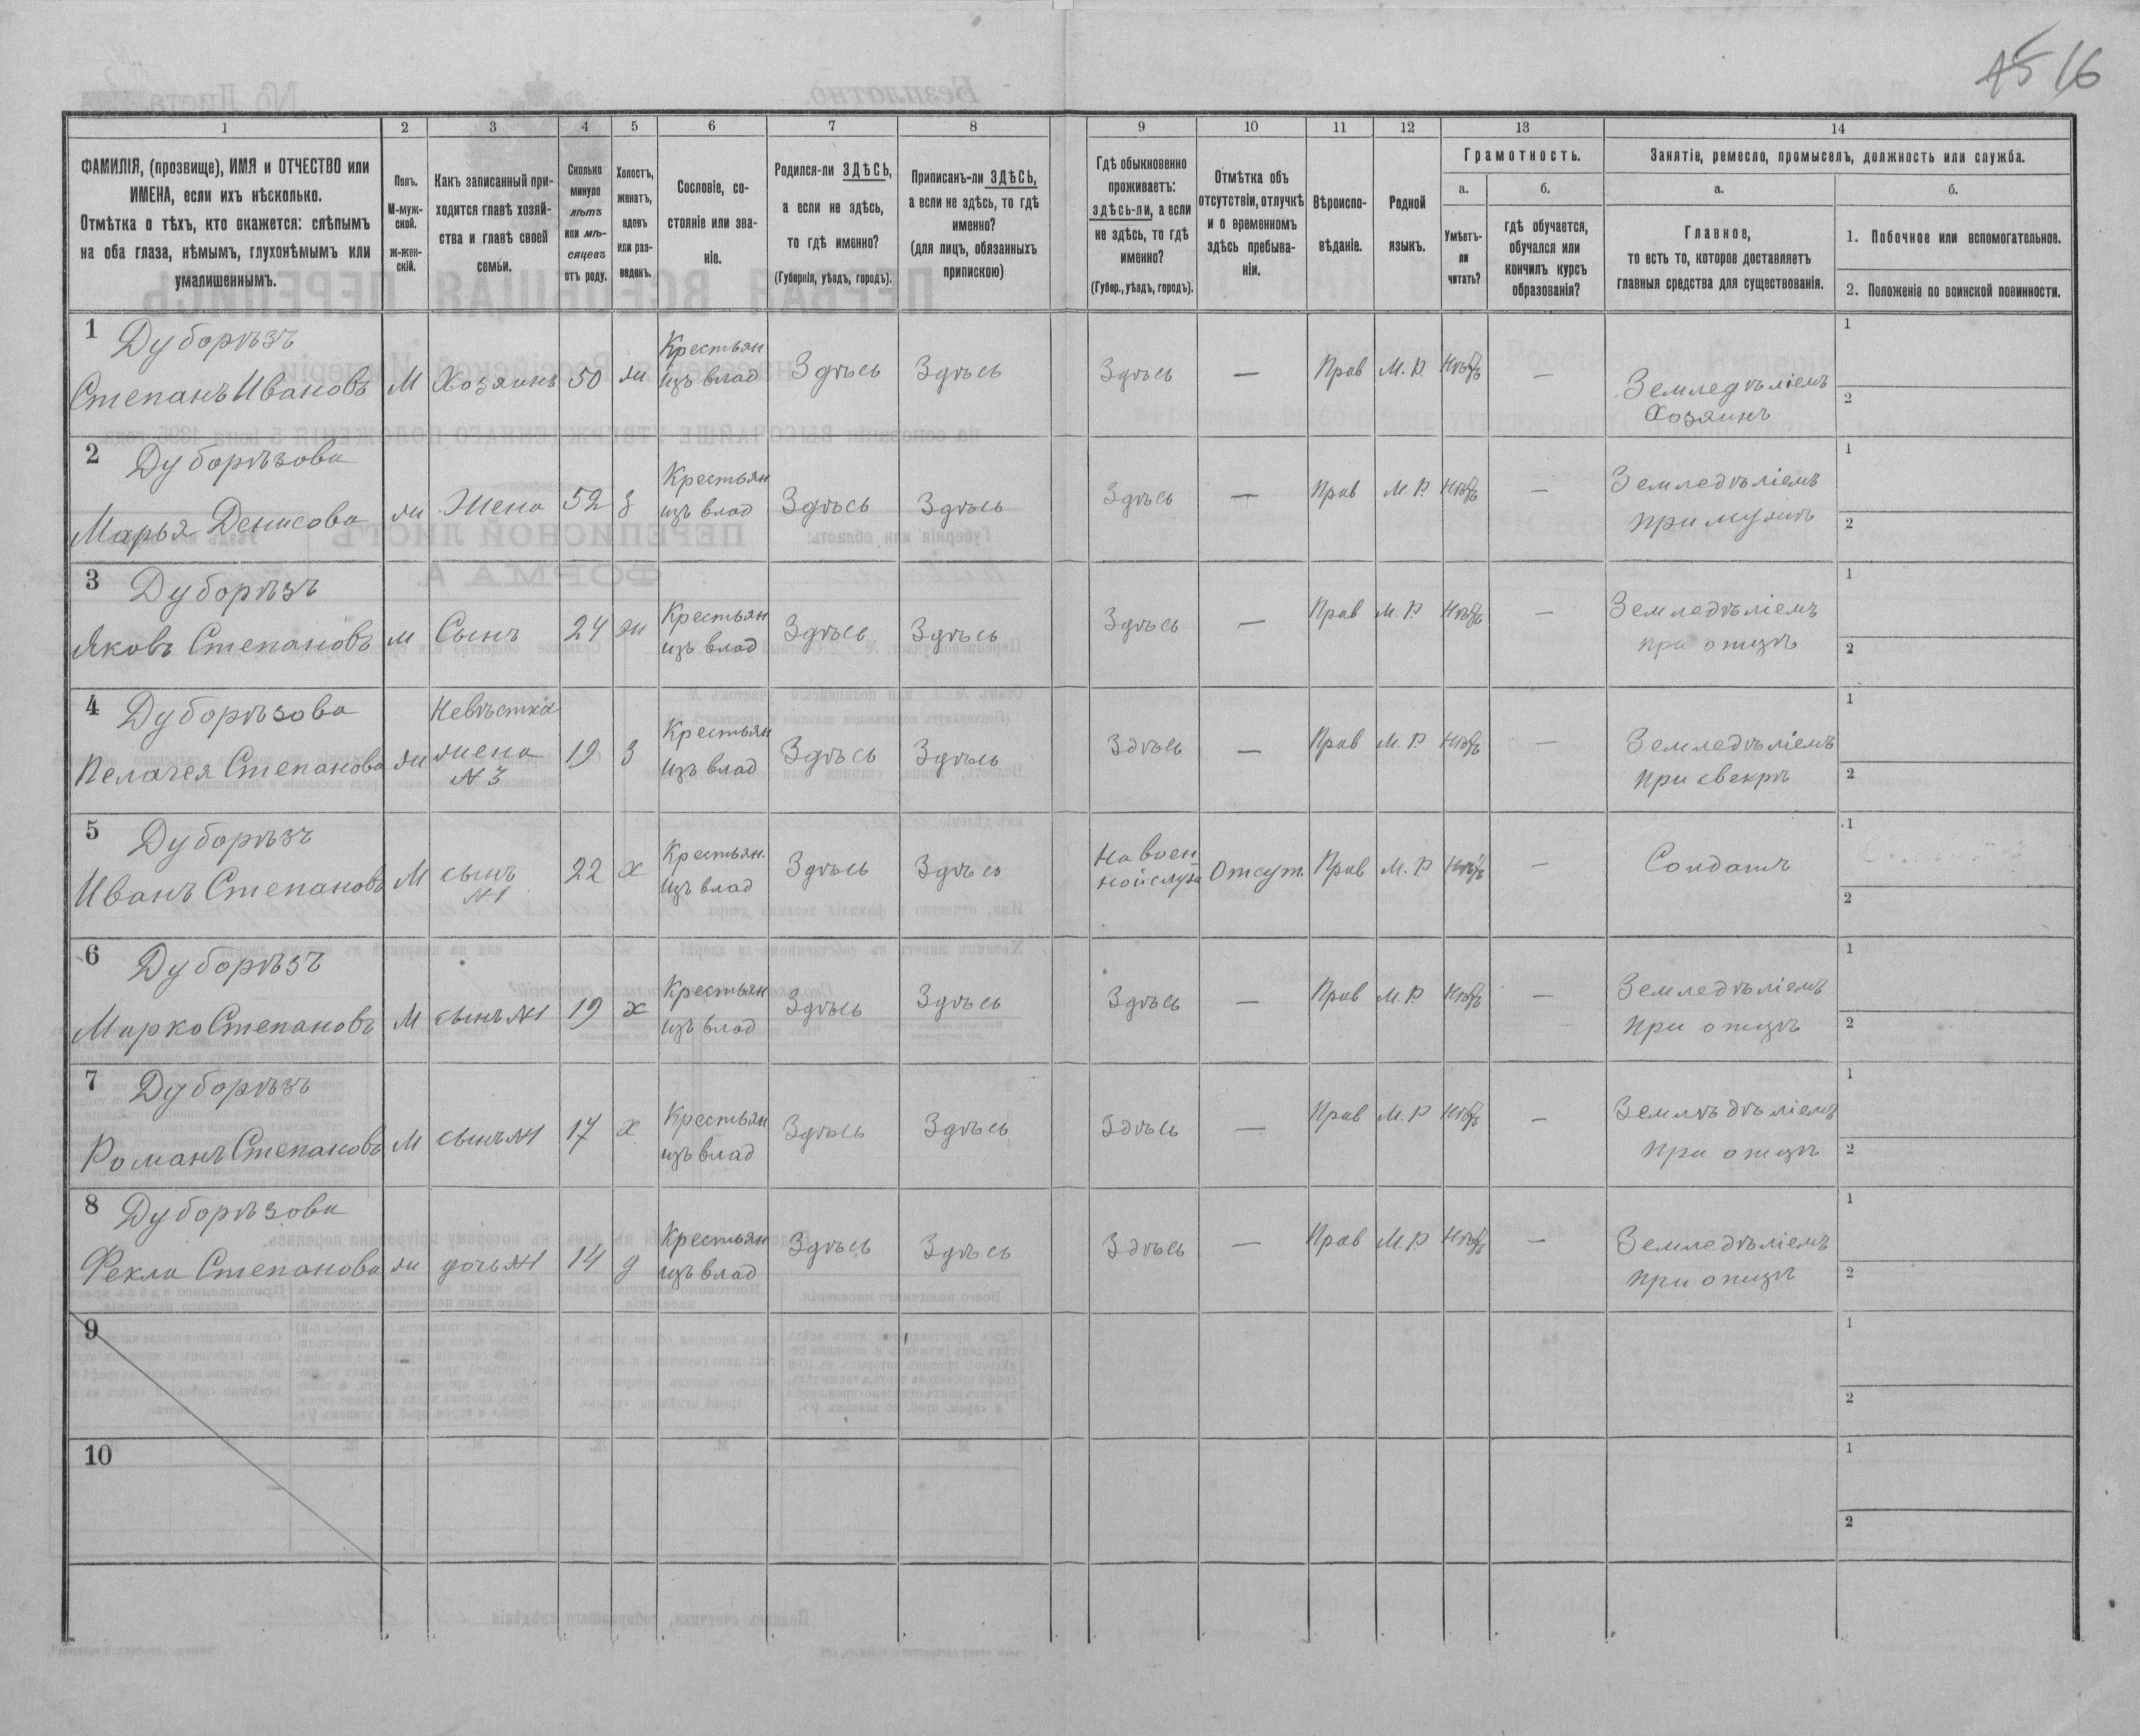 15 16
1 2 3 4 5 6 7 8 9 10 11 12 13 14
ФАМИЛІЯ, (прозвище), ИМЯ и ОТЧЕСТВО или
ИМЕНА, если ихъ нѣсколько.
Отмѣтка о тѣхъ, кто окажется: слѣпымъ
на оба глаза, нѣмымъ, глухонѣмымъ или
умалишеннымъ.
Полъ.
М-муж-
ской.
ж-жен-
скій.
Какъ записанный при-
ходится главѣ хозяй-
ства и главѣ своей
семьи.
Сколько
минуло
лѣтъ
или мѣ-
сяцевъ
отъ роду.
Холостъ,
женатъ,
вдовъ
или раз-
веденъ.
Сословіе, со-
стояніе или зва-
ніе.
Родился-ли ЗДѢСЬ,
а если не здѣсь,
то гдѣ именно?
(Губернія, уѣздъ, городъ).
Приписанъ-ли ЗДѢСЬ,
а если не здѣсь, то гдѣ
именно?
(для лицъ, обязанныхъ
припискою)
Гдѣ обыкновенно
проживаетъ:
здѣсь-ли, а если
не здѣсь, то гдѣ
именно?
(Губер., уѣздъ, городъ).
Отмѣтка объ
отсутствіи, отлучкѣ
и о временномъ
здѣсь пребыва-
ніи.
Вѣроиспо-
вѣданіе.
Родной
языкъ.
Грамотность.
а.
Умѣетъ-
ли
читать?
б.
гдѣ обучается,
обучался или
кончилъ курсъ
образованія?
Занятіе, ремесло, промыселъ, должность или служба.
а.
Главное,
то есть то, которое доставляетъ
главныя средства для существованія.
б.
1. Побочное или вспомогательное.
2. Положеніе по воинской повинности.
1 Дуборѣзъ
Степанъ Ивановъ М Хозяинъ 50 ж Крестьян
изъ влад Здѣсь Здѣсь Здѣсь — Прав М. Р. Нѣтъ — Земледѣліемъ
Хозяинъ 1
2
2 Дуборѣзова
Марья Денисова ж Жена 52 з Крестьян
изъ влад Здѣсь Здѣсь Здѣсь — Прав М. Р. Нѣтъ — Земледѣліемъ
при мужѣ 1
2
3 Дуборѣзъ
Яковъ Степановъ м Сынъ 24 ж Крестьян
изъ влад Здѣсь Здѣсь Здѣсь — Прав М. Р. Нѣтъ — Земледѣліемъ
при отцѣ 1
2
4 Дуборѣзова
Пелагея Степанова ж Невѣстка
жена
№ 3 19 З Крестьян
изъ влад Здѣсь Здѣсь Здѣсь — Прав М. Р. Нѣтъ — Земледѣліемъ
при свекрѣ 1
2
5 Дуборѣзъ
Иванъ Степановъ М сынъ
№1 22 х Крестьян.
изъ влад Здѣсь Здѣсь На воен
ной служ Отсут Прав М. Р Нѣтъ — Солдатъ 1
2
6 Дуборѣзъ
Марко Степановъ М сынъ №1 19 х Крестьян
изъ влад Здѣсь Здѣсь Здѣсь — Прав М. Р. Нѣтъ — Земледѣліемъ
при отцѣ 1
2
7 Дуборѣзъ
Романъ Степановъ М сынъ №1 17 х Крестьян
изъ влад Здѣсь Здѣсь Здѣсь — Прав М. Р Нѣтъ — Землѣдѣліемъ
при отцѣ 1
2
8 Дуборѣзова
Фекла Степанова ж дочь №1 14 д Крестьян
изъ влад Здѣсь Здѣсь Здѣсь — Прав М. Р Нѣтъ — Земледѣліемъ
при отцѣ 1
2
9 1
2
10 1
2